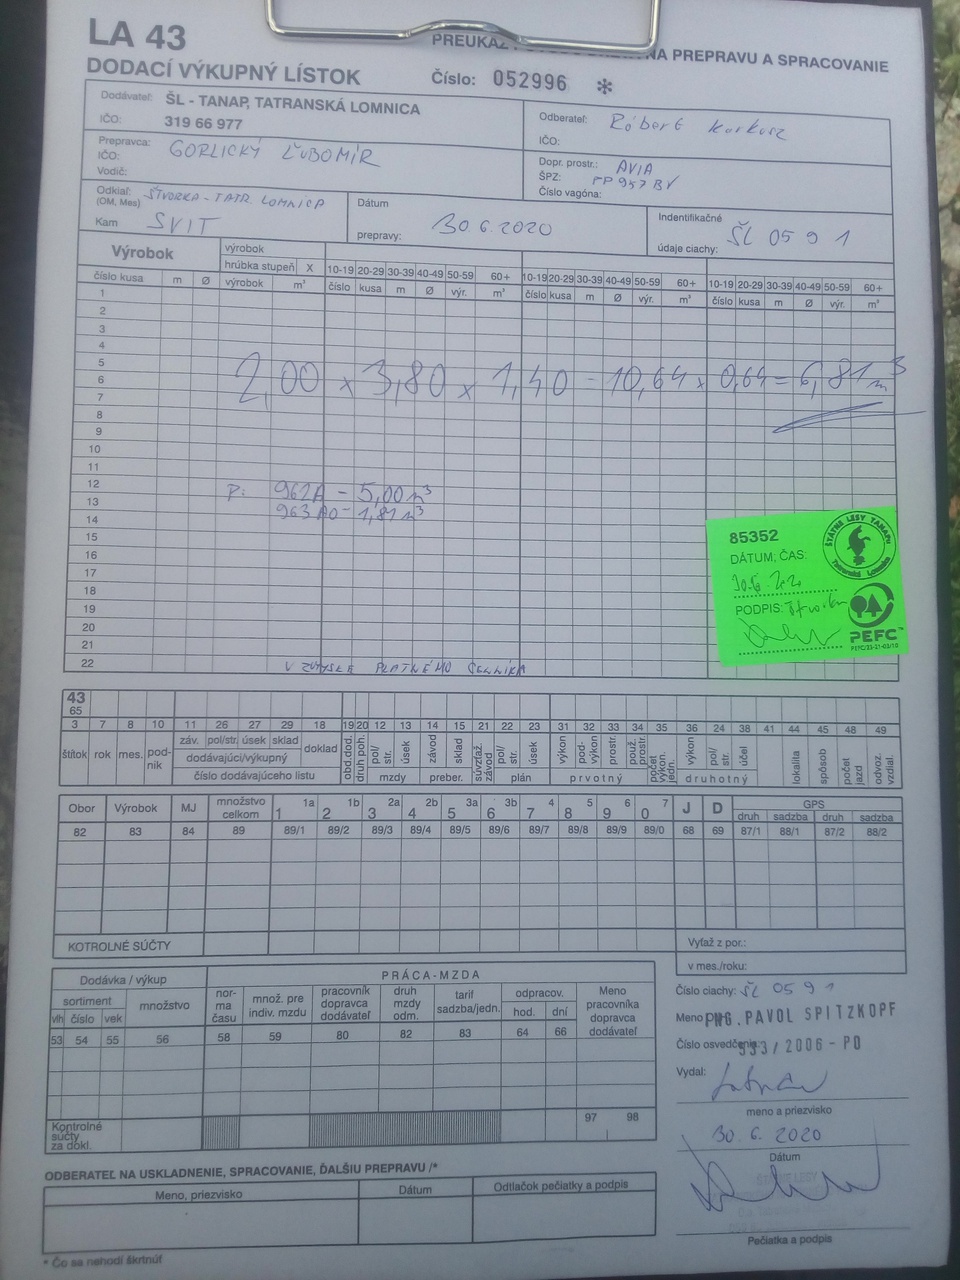 LA 43
PREUKAZ NA PREPRAVU A SPRACOVANIE
DODACÍ VÝKUPNÝ LÍSTOK Číslo: 052996 *
Dodávateľ: ŠL - TANAP, TATRANSKÁ LOMNICA
IČO: 319 66 977
Odberateľ: Róbert
IČO:
Prepravca: GORLICKÝ ĽUBOMÍR
IČO:
Vodič:
Dopr. prostr.: AVIA
ŠPZ: PP 957 BV
Číslo vagóna:
Odkiaľ: ŠTVORKA - TATR. LOMNICA
(OM, Mes)
Kam SVIT
Dátum
prepravy: 30.6.2020
Indentifikačné
údaje ciachy: ŠL 05 9 1
Výrobok
výrobok
hrúbka stupeň X 10-19 20-29 30-39 40-49 50-59 60+ 10-19 20-29 30-39 40-49 50-59 60+ 10-19 20-29 30-39 40-49 50-59 60+
číslo kusa m Ø výrobok m³ číslo kusa m Ø výr. m³ číslo kusa m Ø výr. m³ číslo kusa m Ø výr. m³
1
2
3
4
5
6
7
2,00 x 3,80 x 1,40 - 10,64 x 0,64 = 6,81 m³
8
9
10
11
12
13
14
P: 962A - 5,00 m³
963 A0 - 1,81 m³
15
16
17
18
19
20
21
22
V ZMYSLE PLATNÉHO CENNÍKA
85352
DÁTUM; ČAS:
30.6.2020
PODPIS:
ŠTÁTNE LESY TANAPu
Tatranská Lomnica
PEFC™
PEFC/33-21-03/10
43
65
3 7 8 10 11 26 27 29 18 19 20 12 13 14 15 21 22 23 31 32 33 34 35 36 24 38 41 44 45 48 49
štítok rok mes. pod-nik záv. pol/str. úsek sklad doklad obd.dod. druh poh. pol/str. úsek závod sklad súvzťaž. závod pol/str. úsek výkon pod-výkon prostr. použ. prostr. počet výkon. jedn. výkon pol/str. účel lokalita spôsob počet jazd odvoz. vzdial.
dodávajúci/výkupný
číslo dodávajúceho listu mzdy preber. plán prvotný druhotný
Obor Výrobok MJ množstvo celkom 1 1a 2 1b 3 2a 4 2b 5 3a 6 3b 7 4 8 5 9 6 0 7 J D GPS
druh sadzba druh sadzba
82 83 84 89 89/1 89/2 89/3 89/4 89/5 89/6 89/7 89/8 89/9 89/0 68 69 87/1 88/1 87/2 88/2
KOTROLNÉ SÚČTY
Vyťaž z por.:
v mes./roku:
Dodávka / výkup PRÁCA-MZDA
sortiment množstvo nor-ma času množ. pre indiv. mzdu pracovník dopravca dodávateľ druh mzdy odm. tarif sadzba/jedn. odpracov. Meno pracovníka dopravca dodávateľ
vlh číslo vek hod. dní
53 54 55 56 58 59 80 82 83 64 66
97 98
Kontrolné
súčty
za dokl.
Číslo ciachy: ŠL 05 9 1
Meno ING. PAVOL SPITZKOPF
Číslo osvedčenia: 593/2006-PO
Vydal:
meno a priezvisko
30. 6. 2020
Dátum
Pečiatka a podpis
ODBERATEĽ NA USKLADNENIE, SPRACOVANIE, ĎALŠIU PREPRAVU /*
Meno, priezvisko Dátum Odtlačok pečiatky a podpis
* Čo sa nehodí škrtnúť